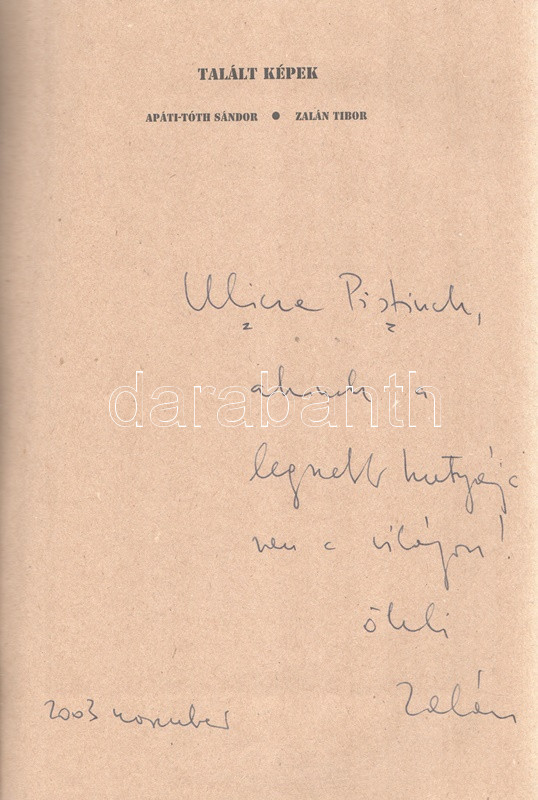 TALÁLT KÉPEK
APÁTI-TÓTH SÁNDOR ● ZALÁN TIBOR
Ulicza Pistinek,
akinek a
darabanth
legszebb kutyája
van a világon!
öleli
Zalán
2003 november